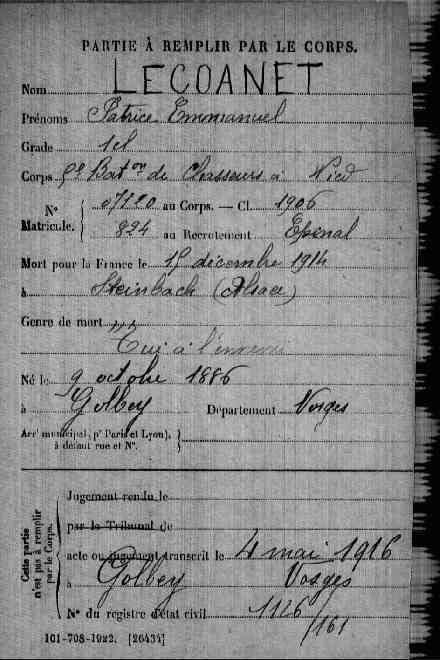 PARTIE À REMPLIR PAR LE CORPS.
Nom LECOANET
Prénoms Patrice Emmanuel
Grade 1 cl
Corps 5e Baton de Chasseurs à Pied
No Matricule. 07120 au Corps. — Cl. 1906
824 au Recrutement Epinal
Mort pour la France le 15 décembre 1914
à Steinbach (Alsace)
Genre de mort
Tué à l'ennemi
Né le 9 octobre 1886
à Golbey Département Vosges
Arrt municipal (pr Paris et Lyon), à défaut rue et No.
Cette partie n'est pas à remplir par le Corps.
Jugement rendu le
par le Tribunal de
acte ou jugement transcrit le 4 mai 1916
à Golbey Vosges
No du registre d'état civil 1126
/161
101-708-1922. [26434]